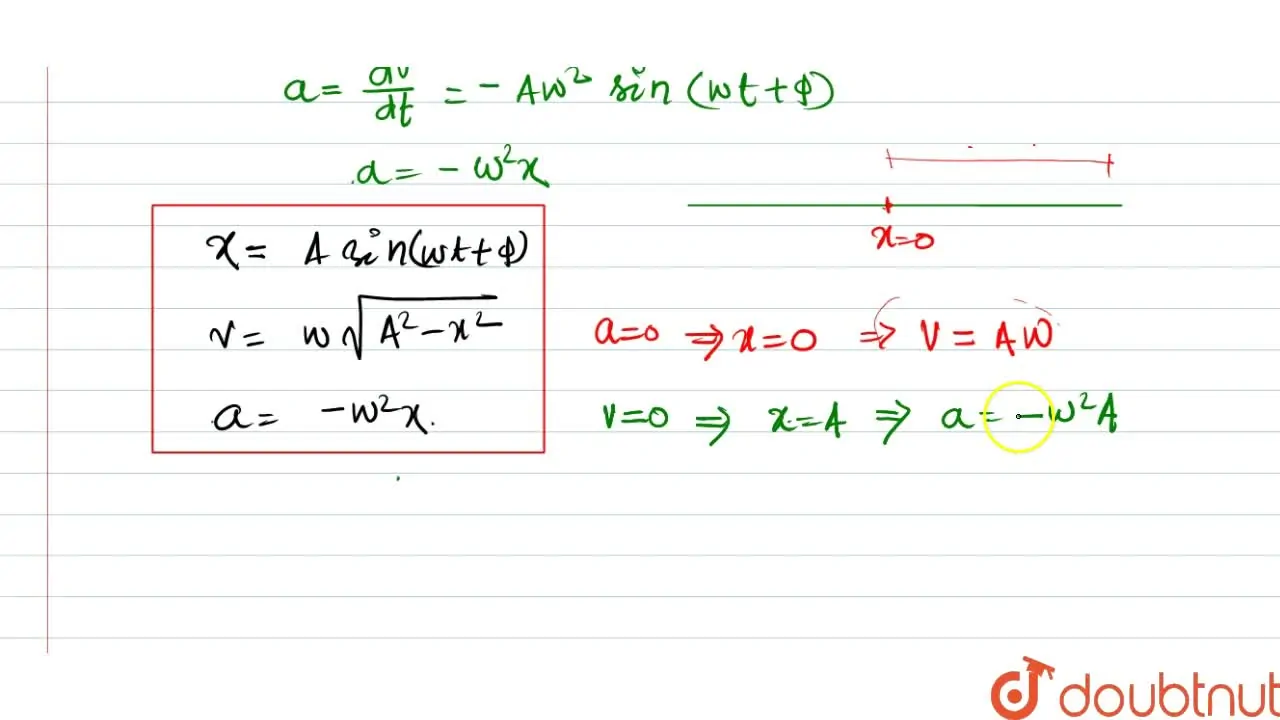 a = dv/dt = - Aω² sin (ωt + φ)
a = - ω²x
x = A sin(ωt + φ)
v = ω√(A² - x²)
a = -ω²x.
x=0
a=0 ⇒ x=0 ⇒ v = Aω
v=0 ⇒ x=A ⇒ a = -ω²A
doubtnut